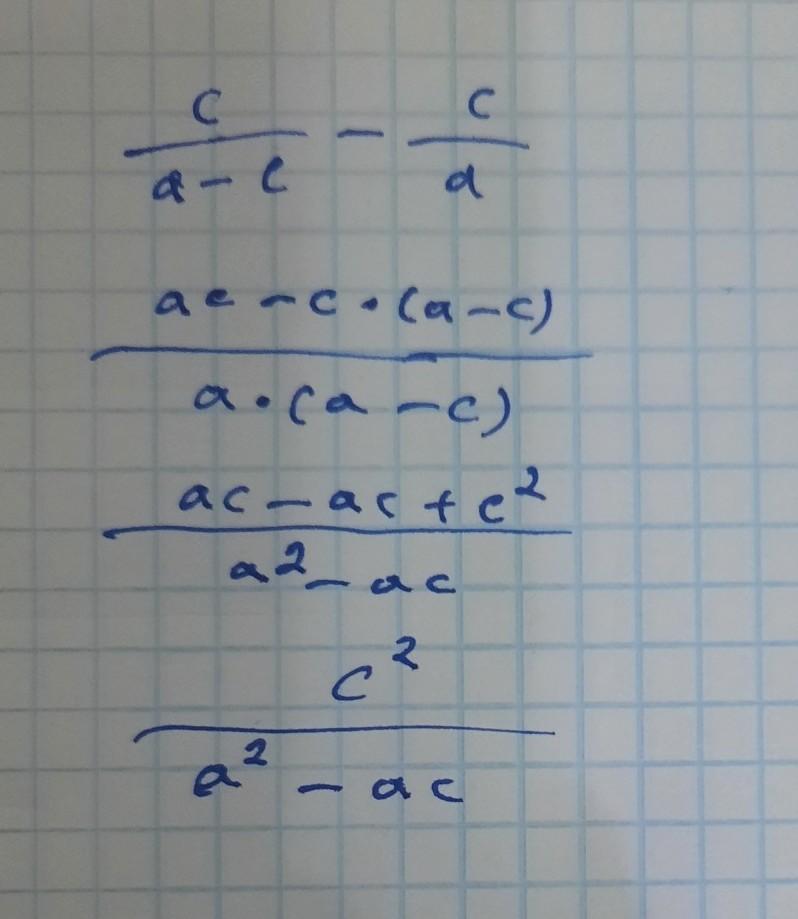 c/(a - c) - c/a
(ac - c · (a - c))/(a · (a - c))
(ac - ac + c²)/(a² - ac)
c²/(a² - ac)